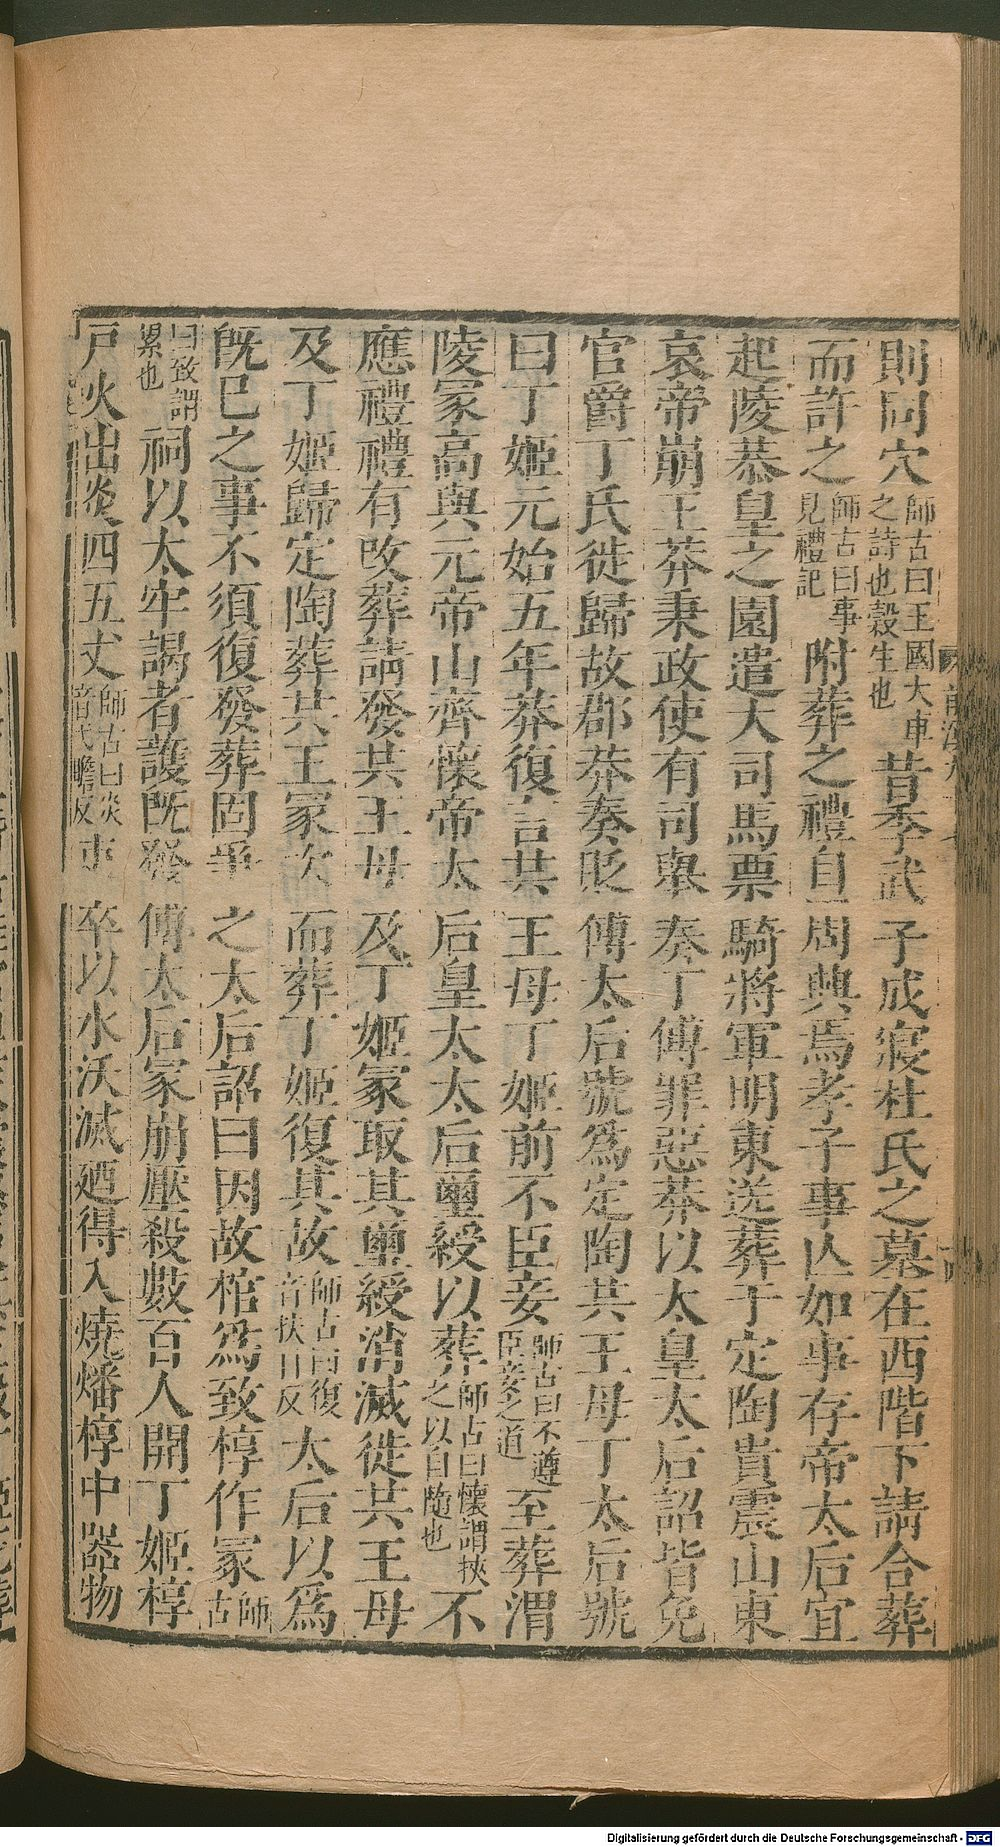 則同穴師古曰王國大車之詩也穀生也昔季武子成寢杜氏之墓在西階下請合葬
而許之師古曰事見禮記附葬之禮自周興焉孝子事亾如事存帝太后宜
起陵恭皇之園遣大司馬票騎將軍明東送葬于定陶貴震山東
哀帝崩王莽秉政使有司舉奏丁傅罪惡莽以太皇太后詔皆免
官爵丁氏徙歸故郡莽奏貶傅太后號爲定陶共王母丁太后號
曰丁姬元始五年莽復言共王母丁姬前不臣妾師古曰不遵臣妾之道至葬渭
陵冢高與元帝山齊懷帝太后皇太太后璽綬以葬師古曰懷謂挾之以自隨也不
應禮禮有改葬請發共王母及丁姬冢取其璽綬消滅徙共王母
及丁姬歸定陶葬共王冢次而葬丁姬復其故師古曰復音扶目反太后以爲
既已之事不須復發莽固爭之太后詔曰因故棺爲致椁作冢師古
曰致謂累也祠以太牢謁者護既發傅太后冢崩壓殺數百人開丁姬椁
戸火出炎四五丈師古曰炎音弋贍反吏卒以水沃滅廼得入燒燔椁中器物
Digitalisierung gefördert durch die Deutsche Forschungsgemeinschaft - DFG